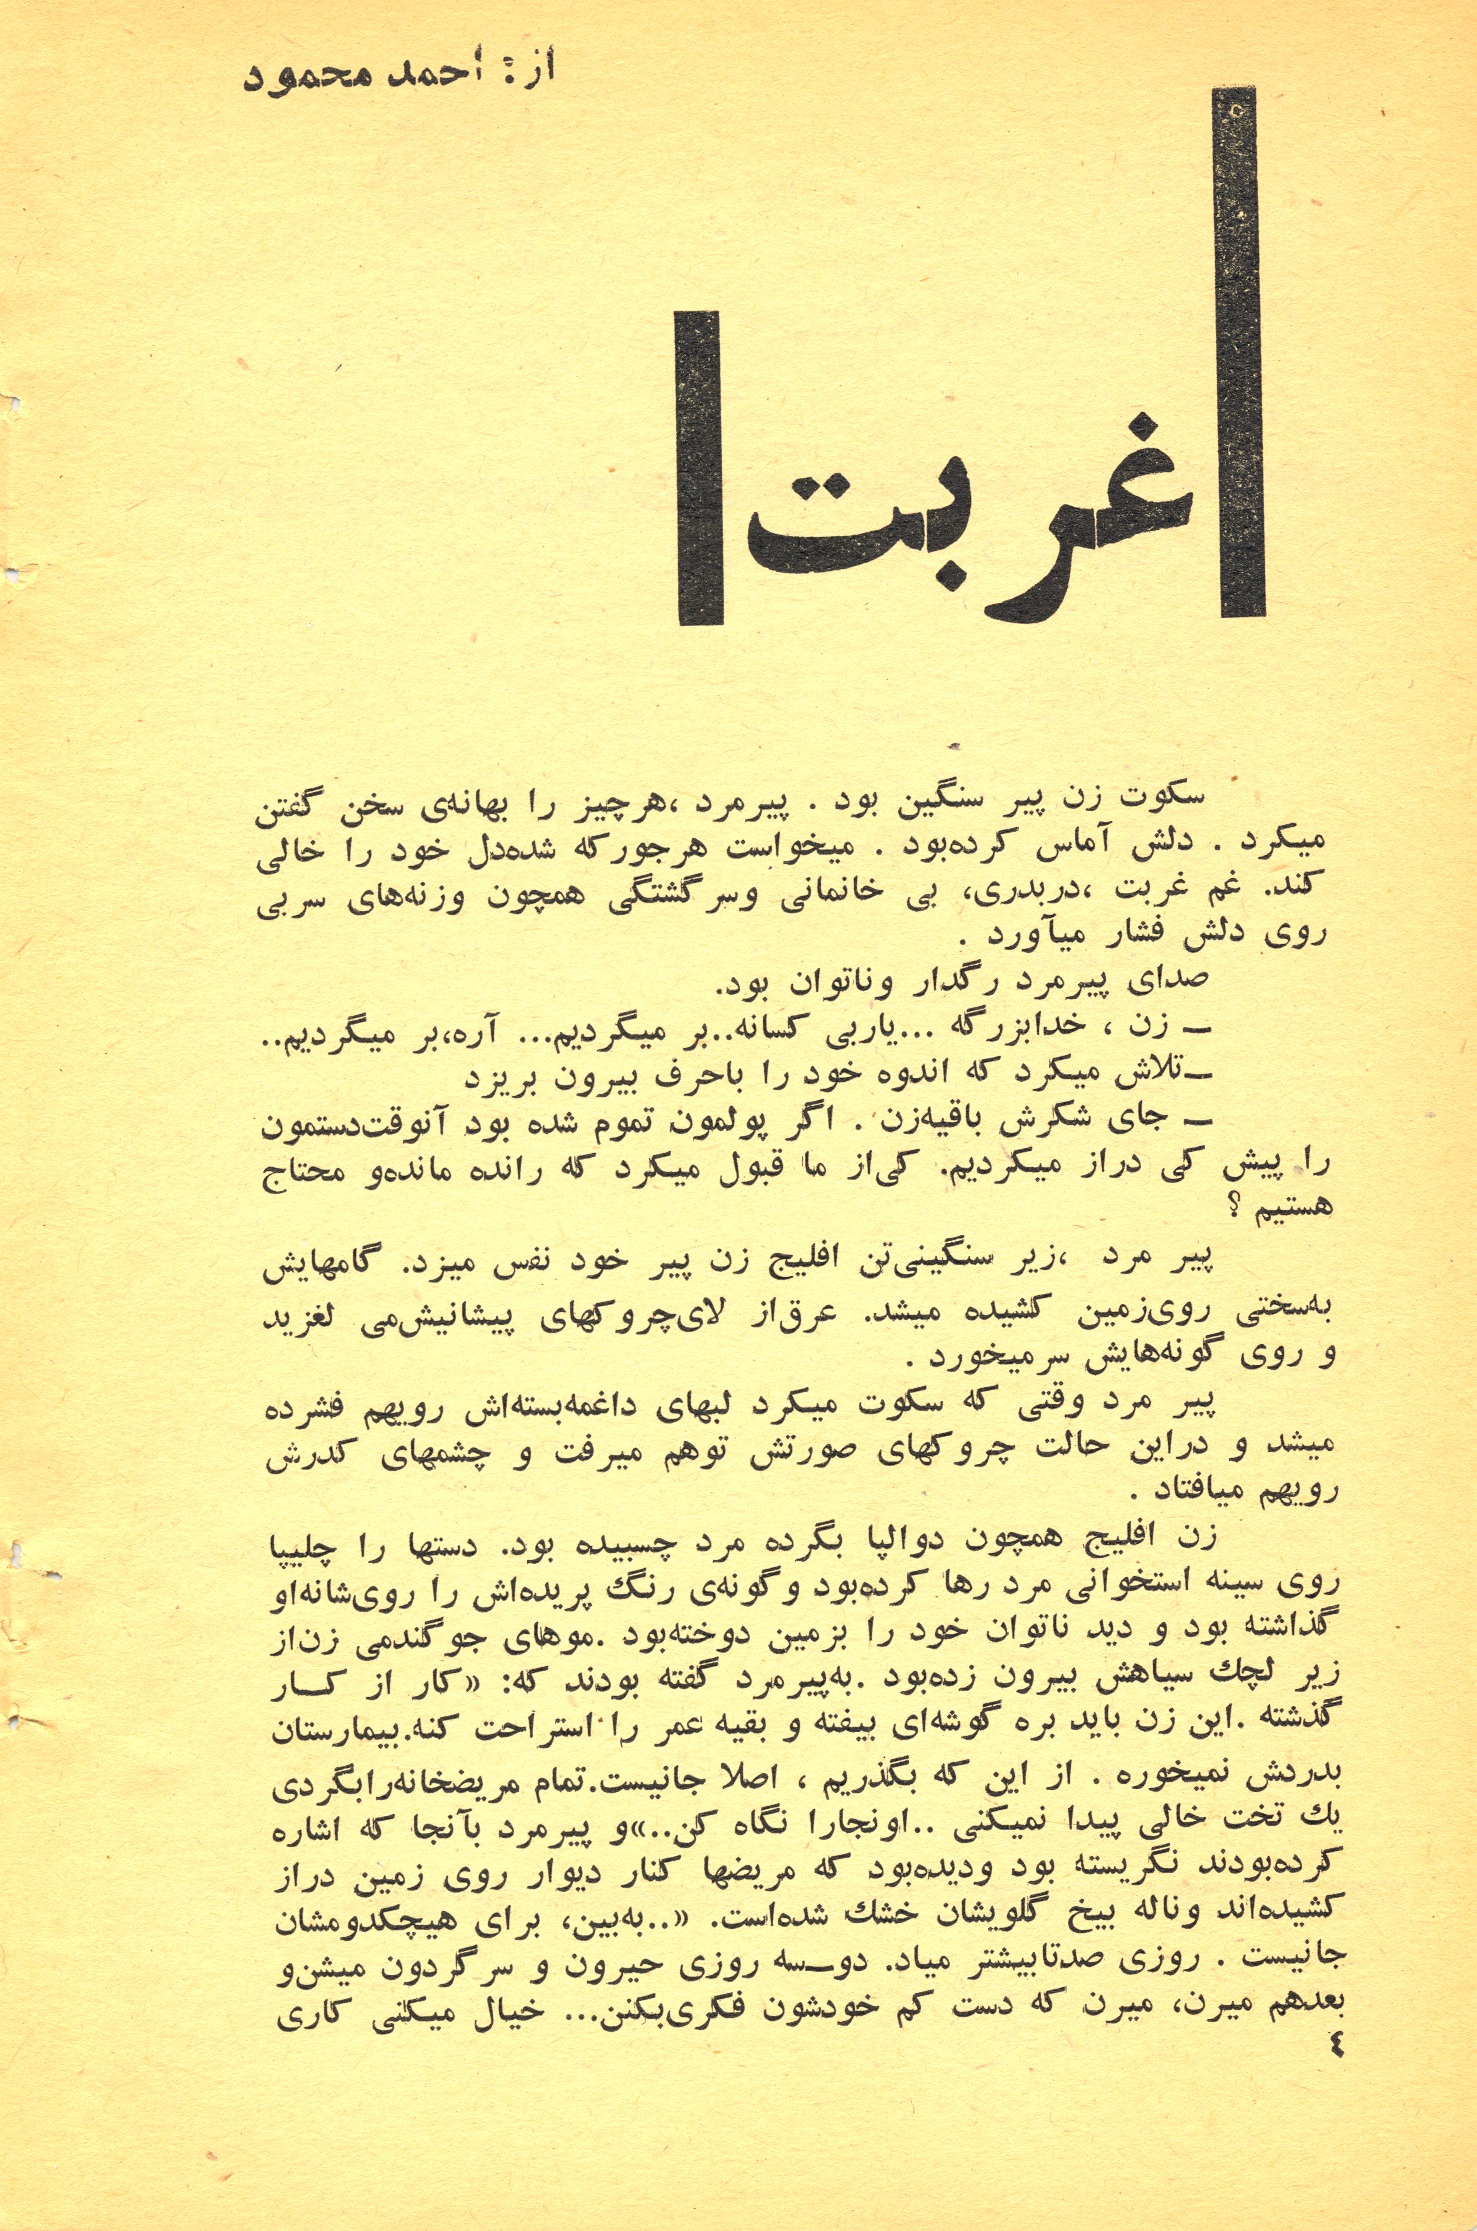 از: احمد محمود
غربت
سکوت زن پیر سنگین بود . پیرمرد ،هرچیز را بهانه‌ی سخن گفتن
میکرد . دلش آماس کرده‌بود . میخواست هرجورکه شده‌دل خود را خالی
کند. غم غربت ،دربدری، بی خانمانی وسرگشتگی همچون وزنه‌های سربی
روی دلش فشار میآورد .
صدای پیرمرد رگدار وناتوان بود.
ـ زن ، خدابزرگه ...یاربی کسانه..بر میگردیم... آره،بر میگردیم..
ـتلاش میکرد که اندوه خود را باحرف بیرون بریزد
ـ جای شکرش باقیه‌زن . اگر پولمون تموم شده بود آنوقت‌دستمون
را پیش کی دراز میکردیم. کی‌از ما قبول میکرد که رانده مانده‌و محتاج
هستیم ؟
پیر مرد ،زیر سنگینی‌تن افلیج زن پیر خود نفس میزد. گامهایش
به‌سختی روی‌زمین کشیده میشد. عرق‌از لای‌چروکهای پیشانیش‌می لغزید
و روی گونه‌هایش سرمیخورد .
پیر مرد وقتی که سکوت میکرد لبهای داغمه‌بسته‌اش رویهم فشرده
میشد و دراین حالت چروکهای صورتش توهم میرفت و چشمهای کدرش
رویهم میافتاد .
زن افلیج همچون دوالپا بگرده مرد چسبیده بود. دستها را چلیپا
روی سینه استخوانی مرد رها کرده‌بود وگونه‌ی رنگ پریده‌اش را روی‌شانه‌او
گذاشته بود و دید ناتوان خود را بزمین دوخته‌بود .موهای جوگندمی زن‌از
زیر لچك سیاهش بیرون زده‌بود .به‌پیرمرد گفته بودند که: «کار از کـــار
گذشته .این زن باید بره گوشه‌ای بیفته و بقیه عمر را استراحت کنه.بیمارستان
بدردش نمیخوره . از این که بگذریم ، اصلا جانیست.تمام مریضخانه‌رابگردی
یك تخت خالی پیدا نمیکنی ..اونجارا نگاه کن..»و پیرمرد بآنجا که اشاره
کرده‌بودند نگریسته بود ودیده‌بود که مریضها کنار دیوار روی زمین دراز
کشیده‌اند وناله بیخ گلویشان خشك شده‌است. «..به‌بین، برای هیچکدومشان
جانیست . روزی صدتابیشتر میاد. دوـسه روزی حیرون و سرگردون میشن‌و
بعدهم میرن، میرن که دست کم خودشون فکری‌بکنن... خیال میکنی کاری
٤